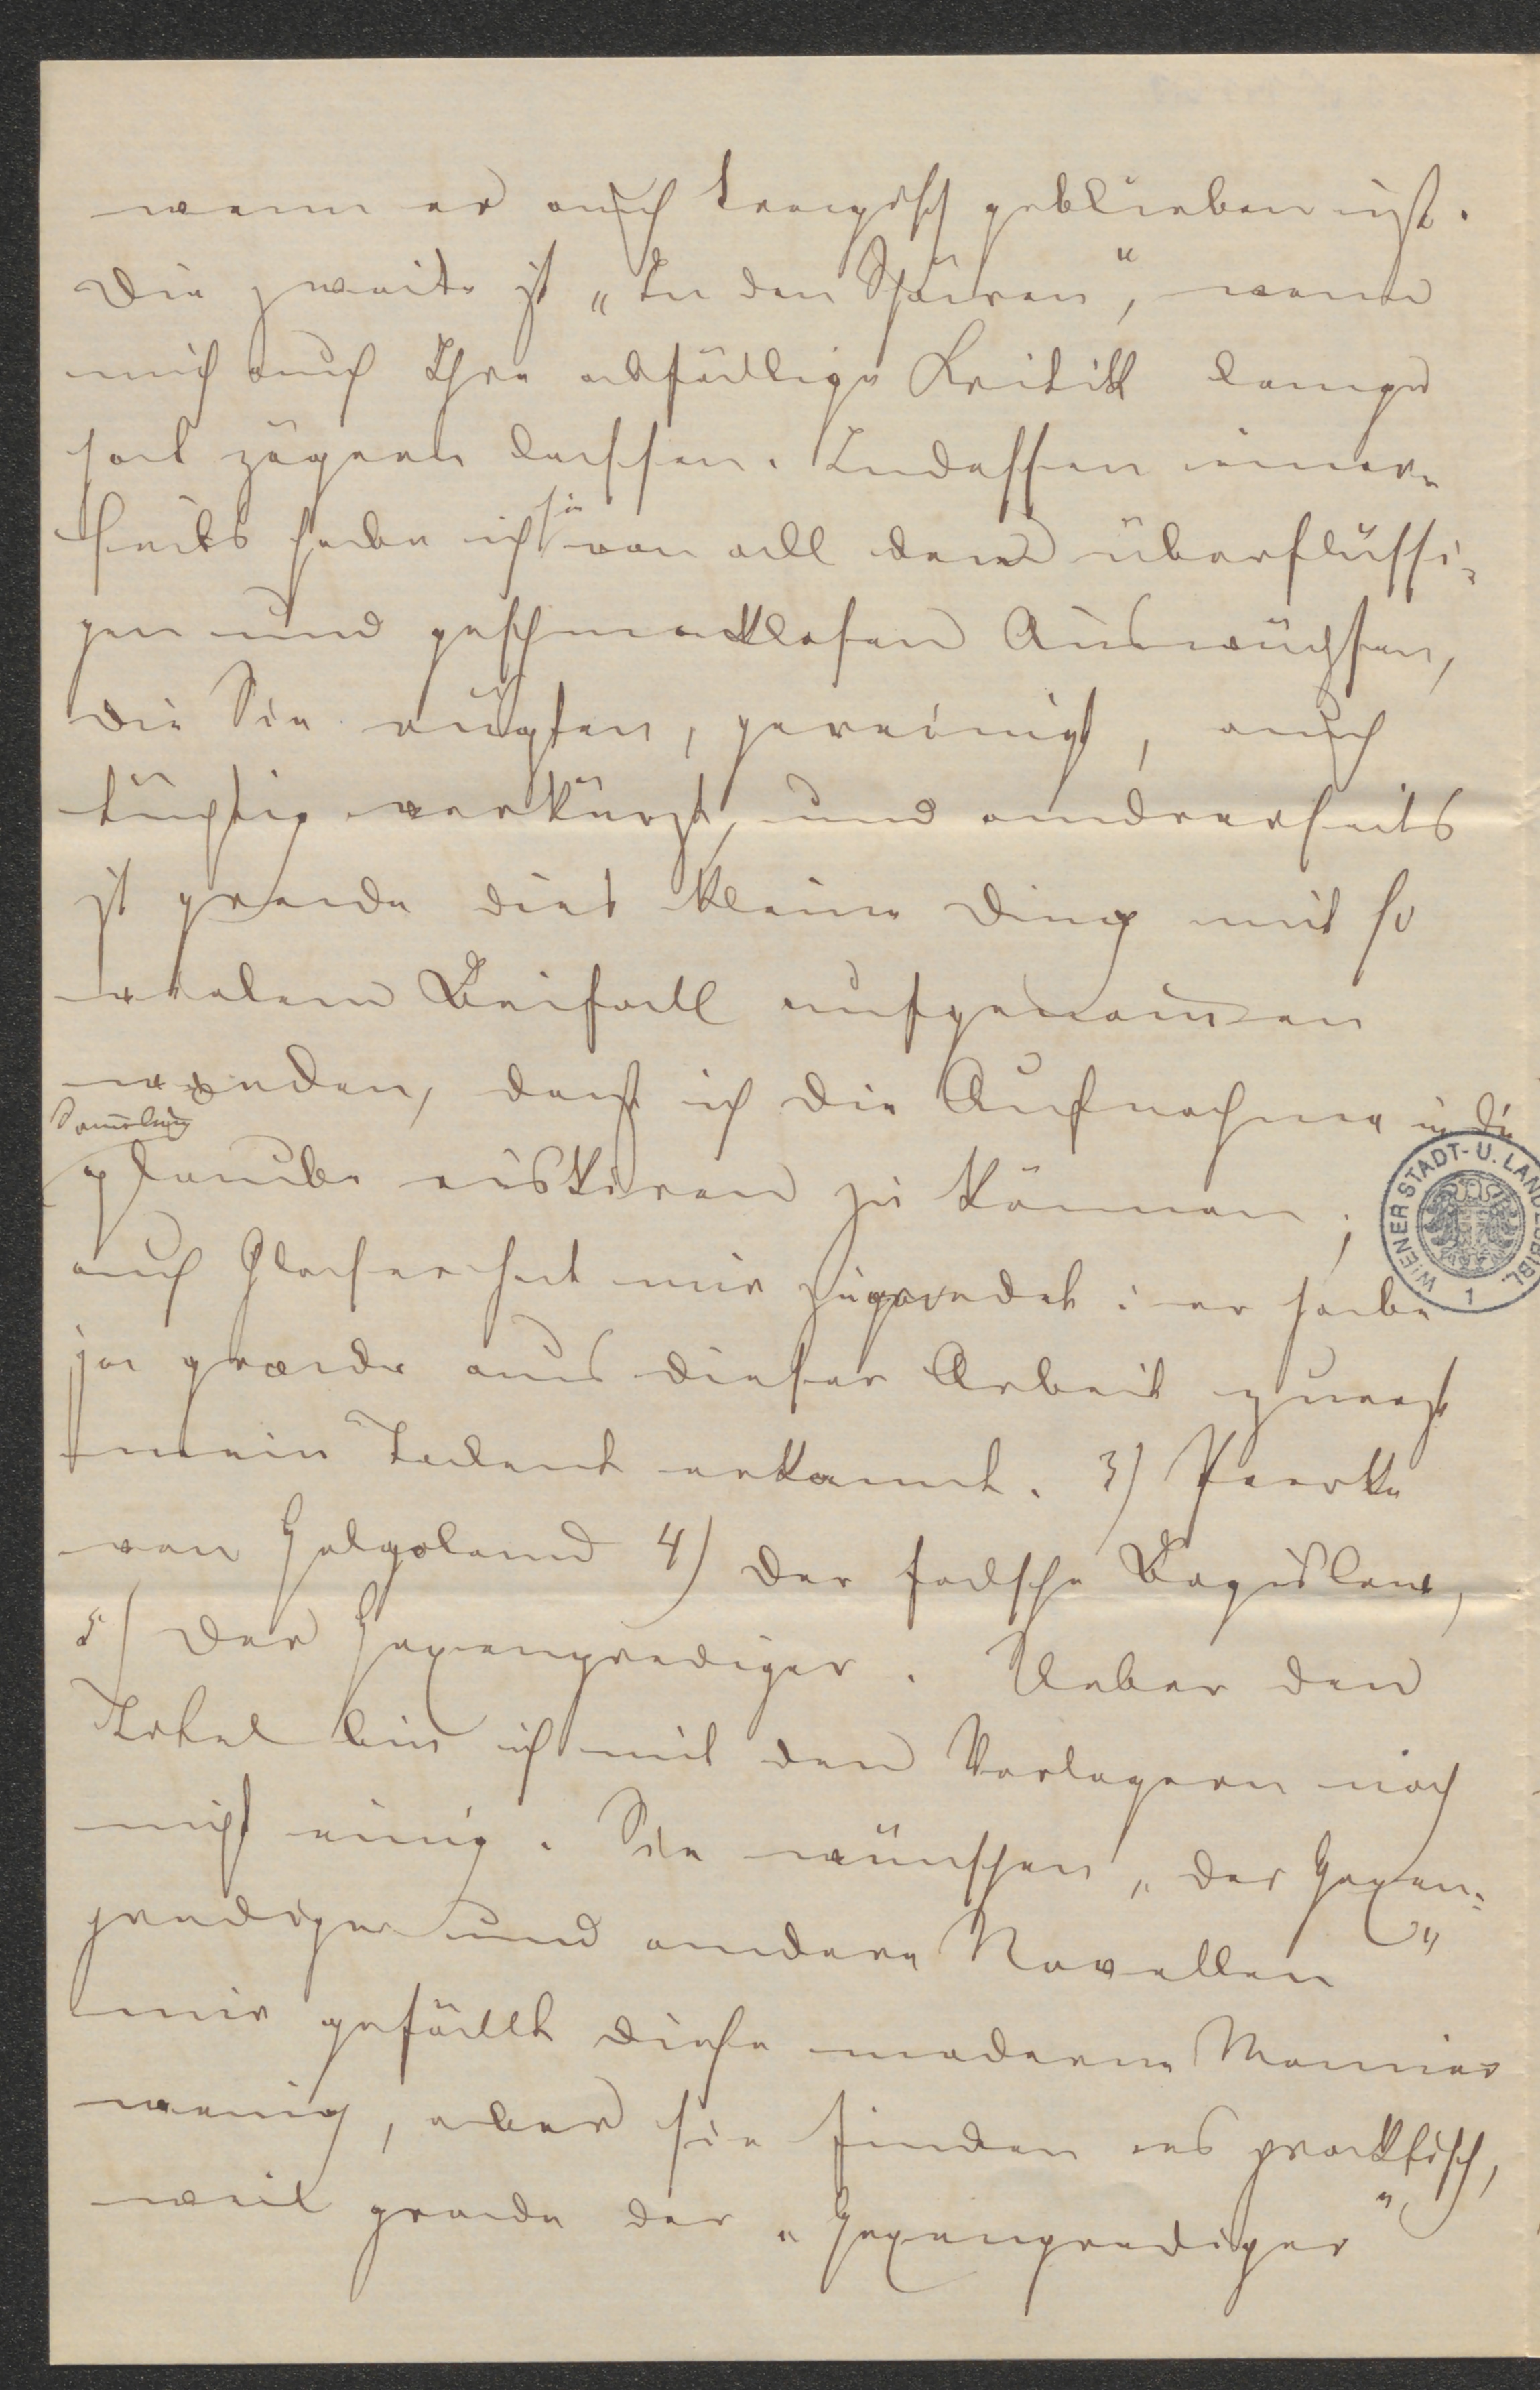 wenn er auch tragisch geblieben ist.
Die zweite ist „In den Schären“, wenn
mich auch Ihre abfällige Kritik lange
hat zögern lassen. Indessen einer-
seits habe ich sie von all den überflüssi-
gen und geschmacklosen Auswüchsen,
die Sie rügten, gereinigt, auch
tüchtig verkürzt, und andrerseits
ist grade dies kleine Ding mit so
vielem Beifall aufgenommen
worden, daß ich die Aufnahme in die
Samlung
glaube riskiren zu können;
auch Glaser hat mir zugeredet: er habe
ja grade aus dieser Arbeit zuerst
mein Talent erkannt. 3) Peerke
von Helgoland 4) Der falsche Bogislaw,
5) Der Hexenprediger. Ueber den
Titel bin ich mit den Verlegern noch
nicht einig. Sie wünschen „Der Hexen-
prediger und andere Novellen“
mir gefällt diese moderne Manier
wenig, aber sie finden es praktisch,
weil grade der „Hexenprediger“
WIENER STADT- U. LANDESBIBL.
1